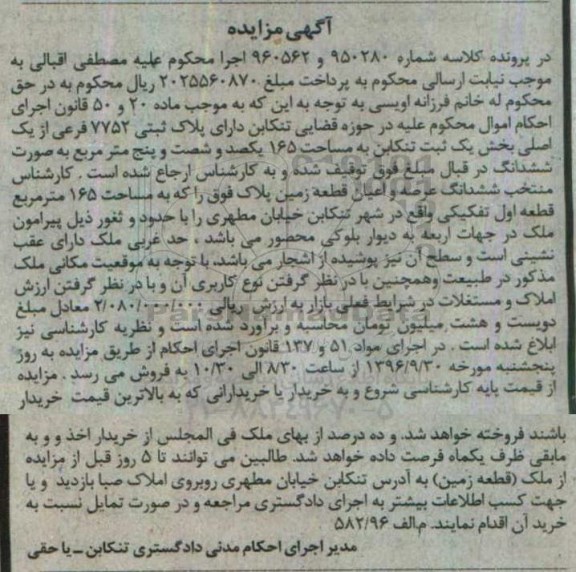 آگهی مزایده
در پرونده کلاسه شماره ۹۵۰۲۸۰ و ۹۶۰۵۶۲ اجرا محکوم علیه مصطفی اقبالی به
موجب نیابت ارسالی محکوم به پرداخت مبلغ ۲۰۲۵۵۶۰۸۷۰ ریال محکوم به در حق
محکوم له خانم فرزانه اویسی به توجه به این که به موجب ماده ۲۰ و ۵۰ قانون اجرای
احکام اموال محکوم علیه در حوزه قضایی تنکابن دارای پلاک ثبتی ۷۷۵۲ فرعی از یک
اصلی بخش یک ثبت تنکابن به مساحت ۱۶۵ یکصد و شصت و پنج متر مربع به صورت
ششدانگ در قبال مبلغ فوق توقیف شده و به کارشناس ارجاع شده است . کارشناس
منتخب ششدانگ عرصه و اعیان قطعه زمین پلاک فوق را که به مساحت ۱۶۵ مترمربع
قطعه اول تفکیکی واقع در شهر تنکابن خیابان مطهری را با حدود و ثغور ذیل پیرامون
ملک در جهات اربعه به دیوار بلوکی محصور می باشد . حد غربی ملک دارای عقب
نشینی است و سطح آن نیز پوشیده از اشجار می باشد، با توجه به موقعیت مکانی ملک
مذکور در طبیعت وهمچنین با در نظر گرفتن نوع کاربری آن و با در نظر گرفتن ارزش
املاک و مستغلات در شرایط فعلی بازار به ارزش ریالی ۲/۰۸۰/۰۰۰/۰۰۰ معادل مبلغ
دویست و هشت میلیون تومان محاسبه و برآورد شده است و نظریه کارشناسی نیز
ابلاغ شده است . در اجرای مواد ۵۱ و ۱۳۷ قانون اجرای احکام از طریق مزایده به روز
پنجشنبه مورخه ۱۳۹۶/۹/۳۰ از ساعت ۸/۳۰ الی ۱۰/۳۰ به فروش می رسد . مزایده
از قیمت پایه کارشناسی شروع و به خریدار یا خریدارانی که به بالاترین قیمت خریدار
باشند فروخته خواهد شد. و ده درصد از بهای ملک فی المجلس از خریدار اخذ و و به
مابقی ظرف یکماه فرصت داده خواهد شد. طالبین می توانند تا ۵ روز قبل از مزایده
از ملک (قطعه زمین) به آدرس تنکابن خیابان مطهری روبروی املاک صبا بازدید و یا
جهت کسب اطلاعات بیشتر به اجرای دادگستری مراجعه و در صورت تمایل نسبت به
خرید آن اقدام نمایند. م‌الف ۵۸۲/۹۶
مدیر اجرای احکام مدنی دادگستری تنکابن ـ یا حقی